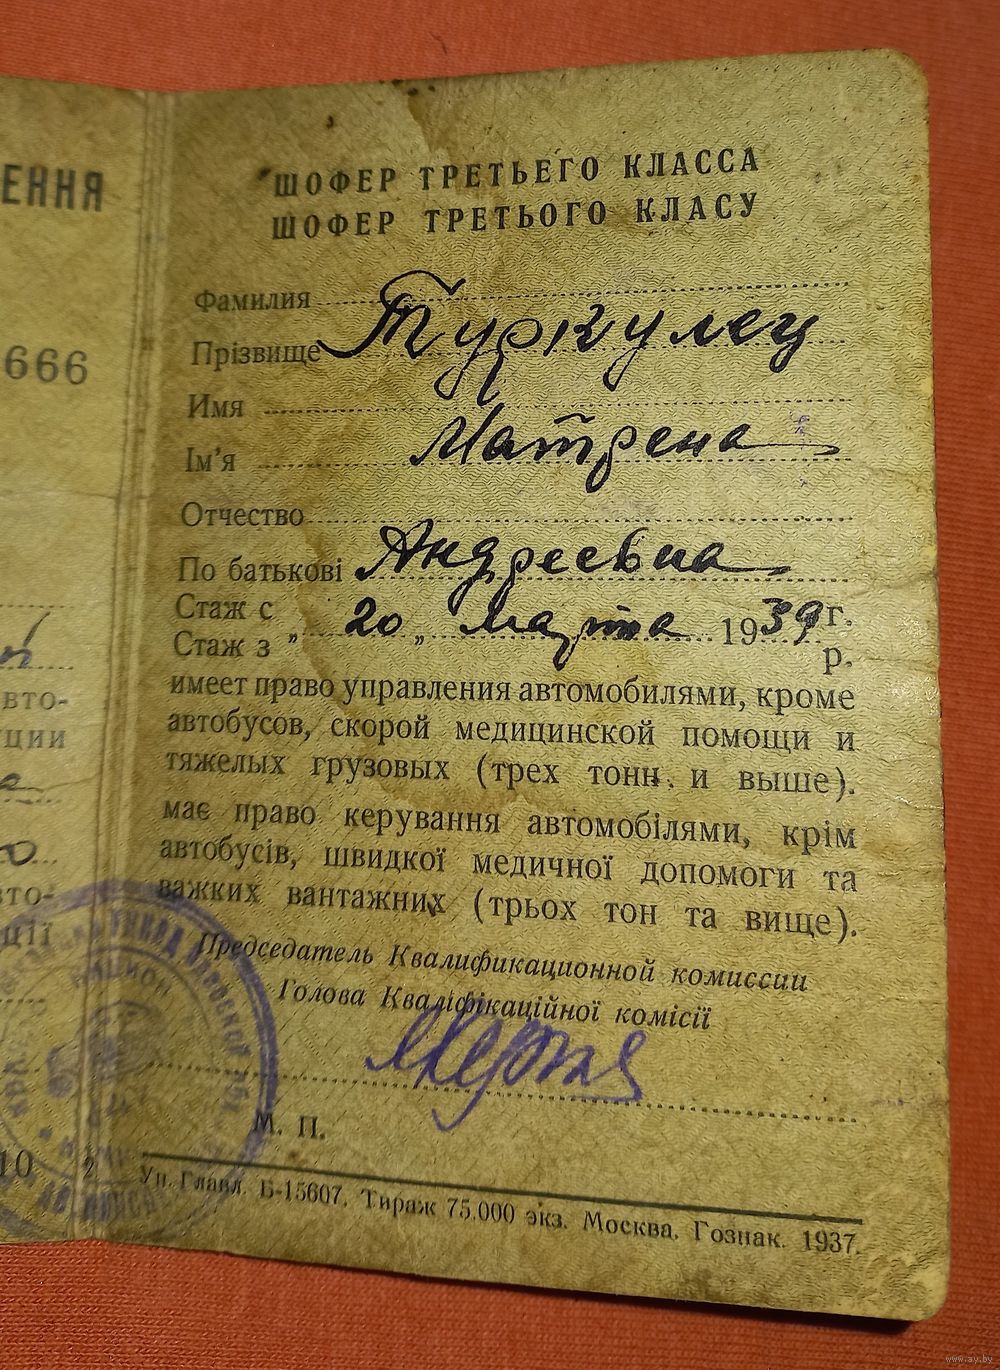 ЕННЯ
666
вто-
ции
вто-
ції
10
ШОФЕР ТРЕТЬЕГО КЛАССА
ШОФЕР ТРЕТЬОГО КЛАСУ
Фамилия
Прізвище Туркулец
Имя
Ім'я Матрена
Отчество
По батькові Андреевна
Стаж с
Стаж з „ 20 „ марта 1939 г.
р.
имеет право управления автомобилями, кроме
автобусов, скорой медицинской помощи и
тяжелых грузовых (трех тонн. и выше).
має право керування автомобілями, крім
автобусів, швидкої медичної допомоги та
важких вантажних (трьох тон та вище).
Председатель Квалификационной комиссии
Голова Кваліфікаційної комісії
М. П.
2
Уп. Главл. Б-15607. Тираж 75.000 экз. Москва. Гознак. 1937.
www.ay.by